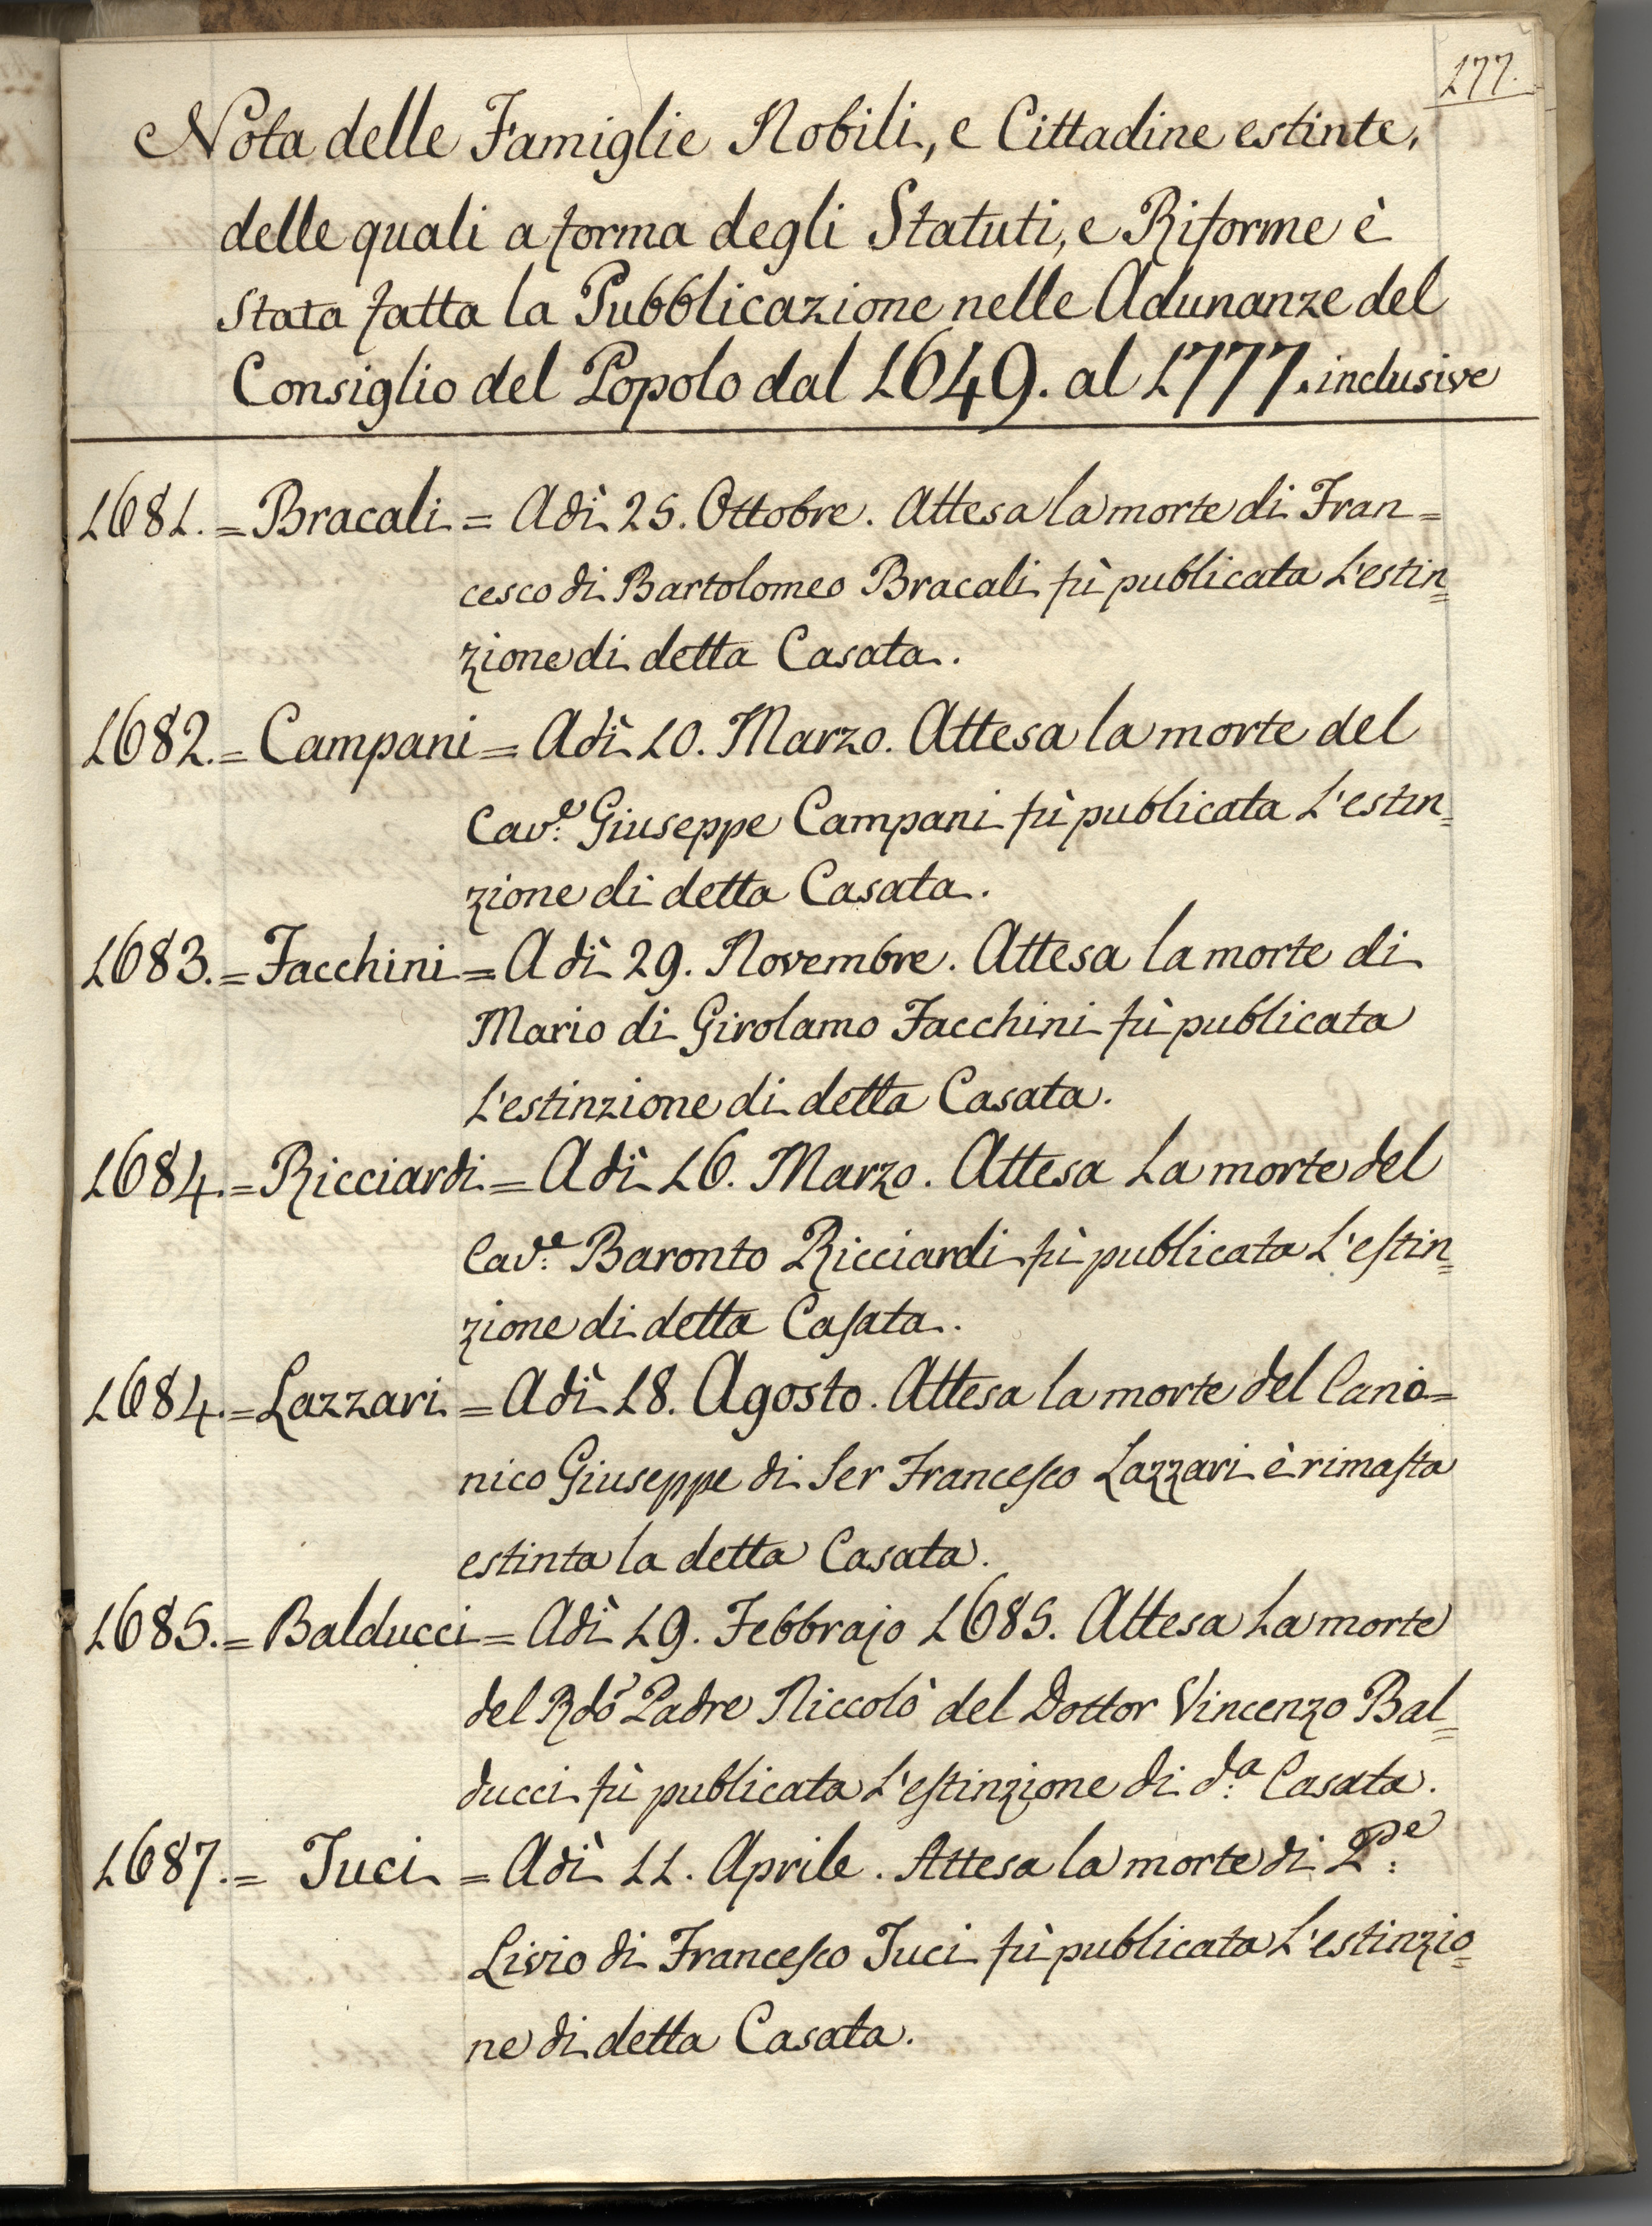 177.
Nota delle Famiglie Nobili, e Cittadine estinte,
delle quali a forma degli Statuti, e Riforme è
stata fatta la Pubblicazione nelle Adunanze del
Consiglio del Popolo dal 1649. al 1777. inclusive
1681. = Bracali = Adì 25. Ottobre. Attesa la morte di Fran=
cesco di Bartolomeo Bracali fù publicata L'estin=
zione di detta Casata.
1682. = Campani = Adì 10. Marzo. Attesa la morte del
Cav.e Giuseppe Campani fù publicata L'estin=
zione di detta Casata.
1683. = Facchini = Adì 29. Novembre. Attesa la morte di
Mario di Girolamo Facchini fù publicata
L'estinzione di detta Casata.
1684. = Ricciardi = Adì 16. Marzo. Attesa La morte del
Cav.e Baronto Ricciardi fù publicata L'eſtin=
zione di detta Caſata.
1684. = Lazzari = Adì 18. Agosto. Attesa la morte del Cano=
nico Giuseppe di Ser Franceſco Lazzari è rimaſta
estinta la detta Casata.
1685. = Balducci = Adì 19. Febbrajo 1685. Attesa La morte
del Rdo Padre Niccolò del Dottor Vincenzo Bal=
ducci fù publicata L'eſtinzione di d.a Casata.
1687. = Tuci = Adì 11. Aprile. Attesa la morte di P.e
Livio di Franceſco Tuci fù publicata L'estinzio=
ne di detta Casata.